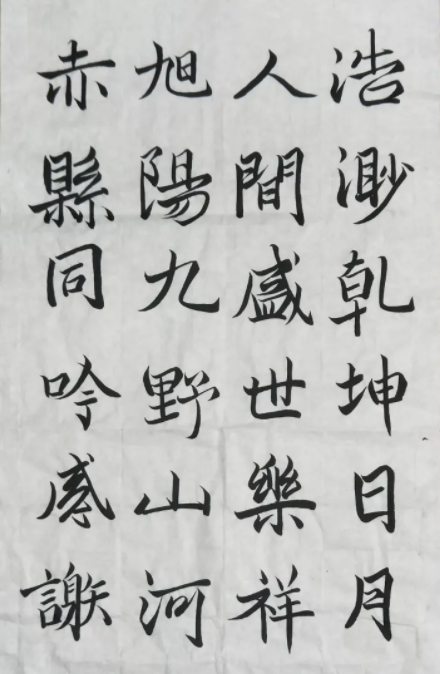 浩渺乾坤日月
人間盛世樂祥
旭陽九野山河
赤縣同吟感謝